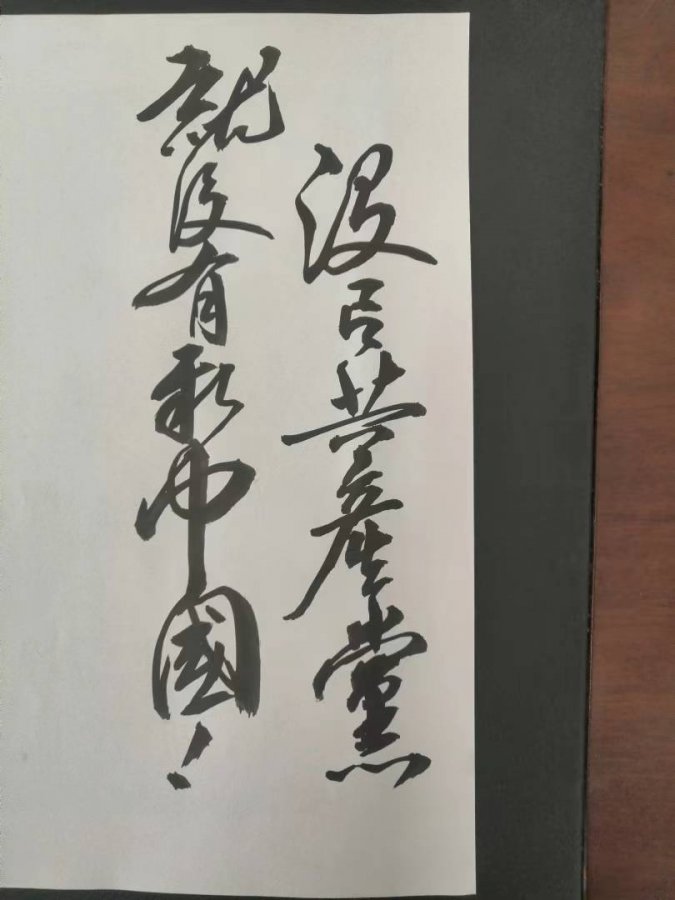 没有共產黨
就没有新中國！